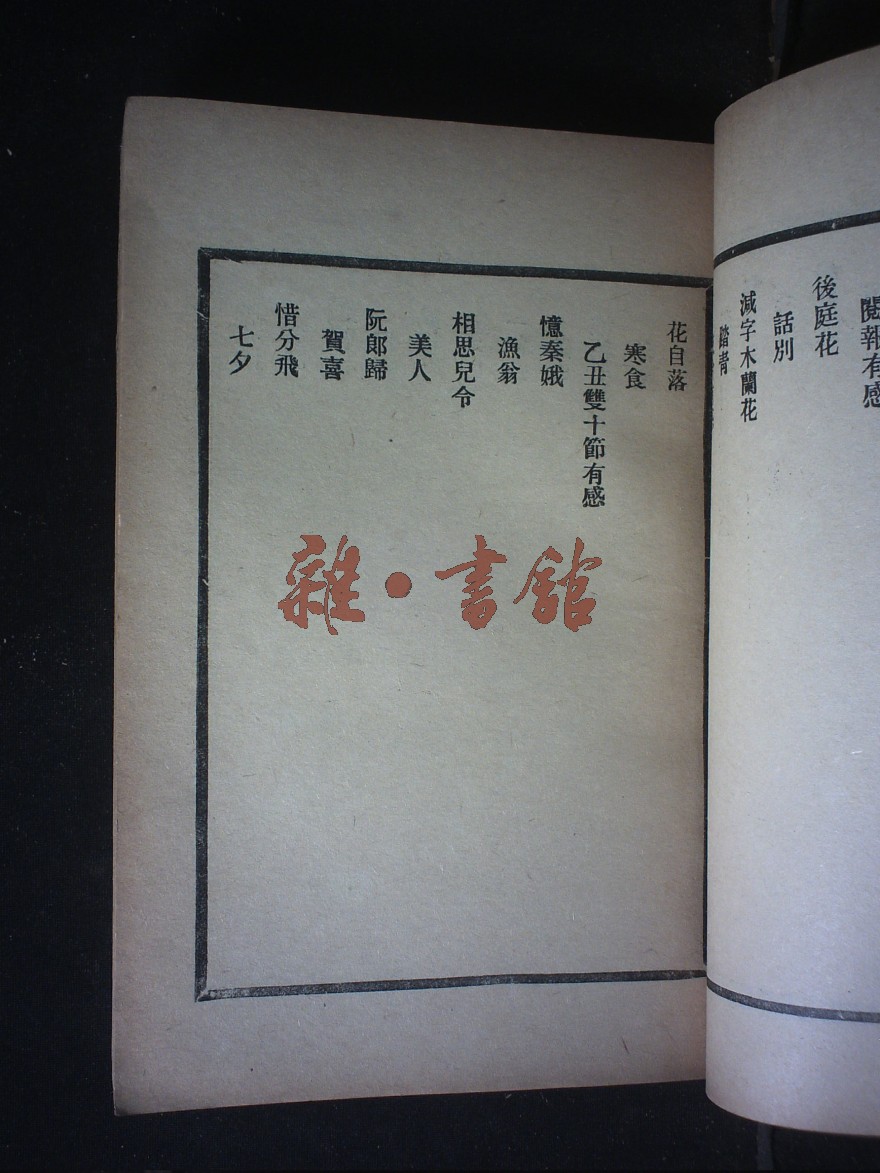 閱報有感
後庭花
話別
減字木蘭花
踏青
花自落
寒食
乙丑雙十節有感
憶秦娥
漁翁
相思兒令
美人
阮郎歸
賀喜
惜分飛
七夕
雜·書館